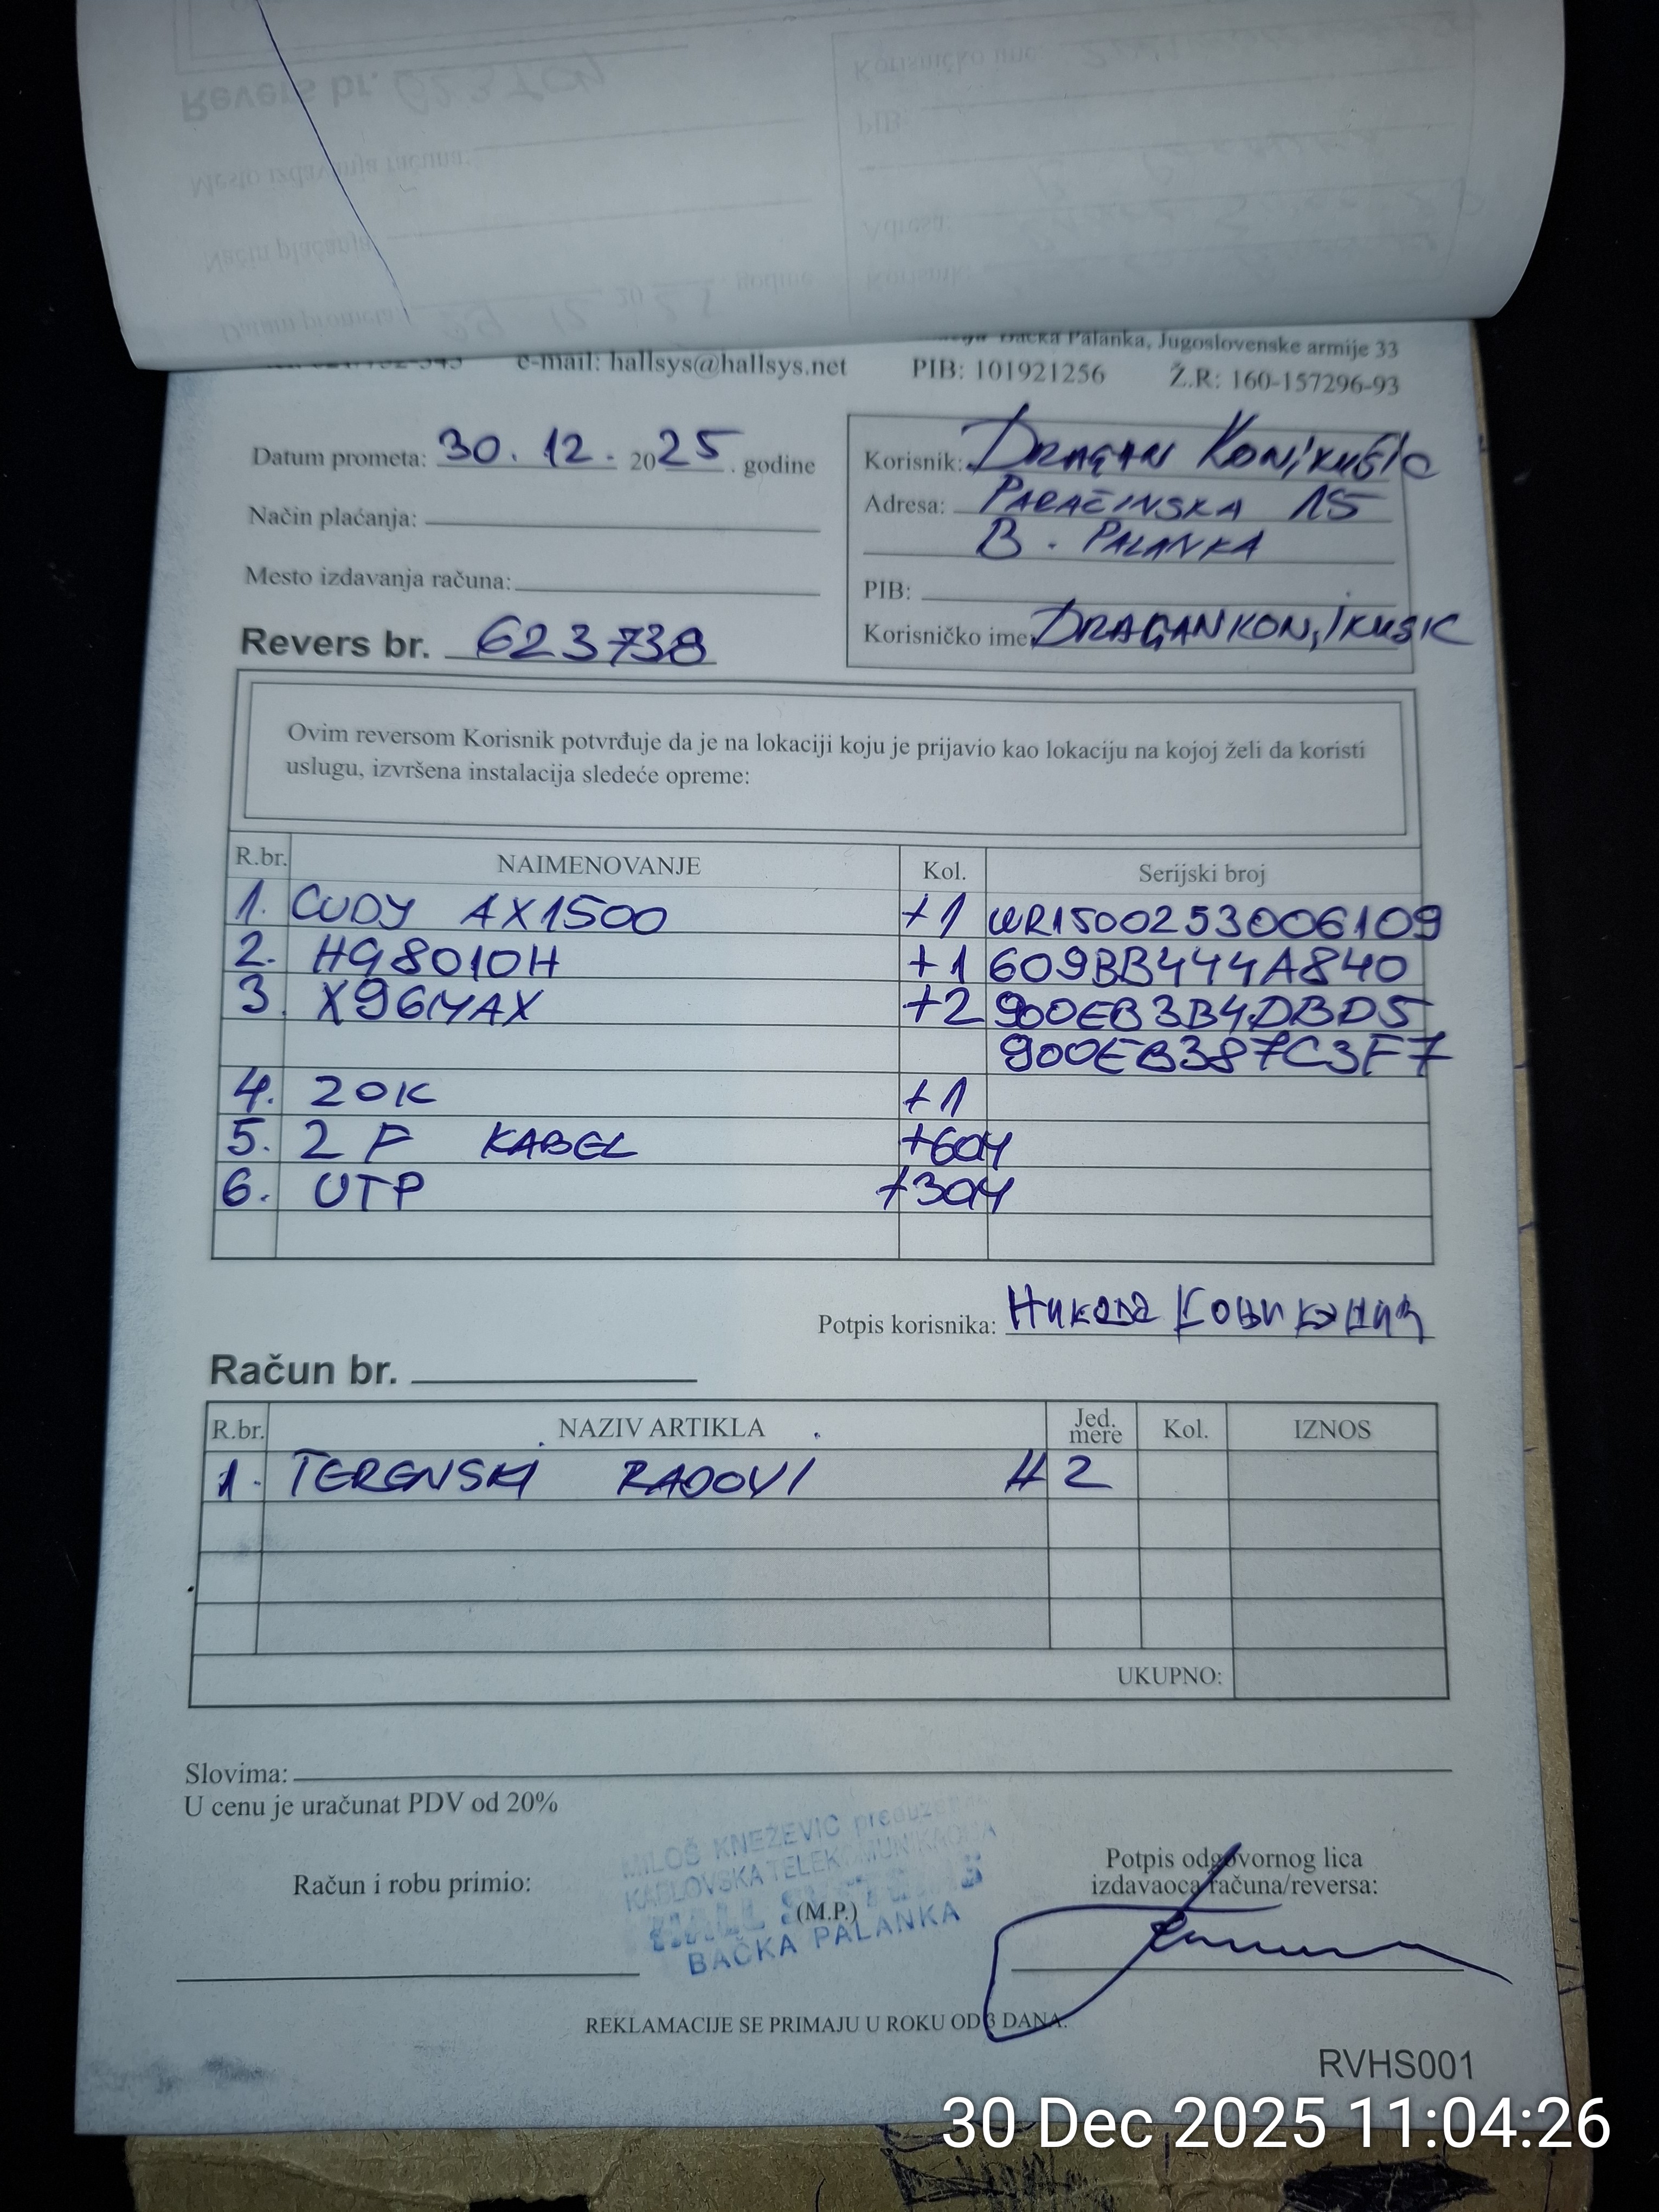 Bačka Palanka, Jugoslovenske armije 33
e-mail: hallsys@hallsys.net PIB: 101921256 Ž.R: 160-157296-93
Datum prometa: 30. 12. 2025. godine
Način plaćanja:
Mesto izdavanja računa:
Revers br. 623738
Korisnik: DRAGAN
Adresa: PARAĆINSKA 15
B. PALANKA
PIB:
Korisničko ime: DRAGANKONJIKUSIC
Ovim reversom Korisnik potvrđuje da je na lokaciji koju je prijavio kao lokaciju na kojoj želi da koristi
uslugu, izvršena instalacija sledeće opreme:
R.br. NAIMENOVANJE Kol. Serijski broj
1. CUDY AX1500 +1 WR15002253006109
2. HG8010H +1 609BB444A840
3. X96MAX +2 900EB3B4DBD5
900EB387C3F7
4. ZOK +1
5. 2 F KABEL +60M
6. UTP +30M
Potpis korisnika:
Račun br.
R.br. NAZIV ARTIKLA Jed. mere Kol. IZNOS
1. TERENSKI RADOVI H 2
UKUPNO:
Slovima:
U cenu je uračunat PDV od 20%
MILOŠ KNEŽEVIĆ preduzetnik
KABLOVSKA TELEKOMUNIKACIJA
HALL SYSTEMS
BAČKA PALANKA
Račun i robu primio:
(M.P.)
Potpis odgovornog lica
izdavaoca računa/reversa:
REKLAMACIJE SE PRIMAJU U ROKU OD 3 DANA.
RVHS001
30 Dec 2025 11:04:26